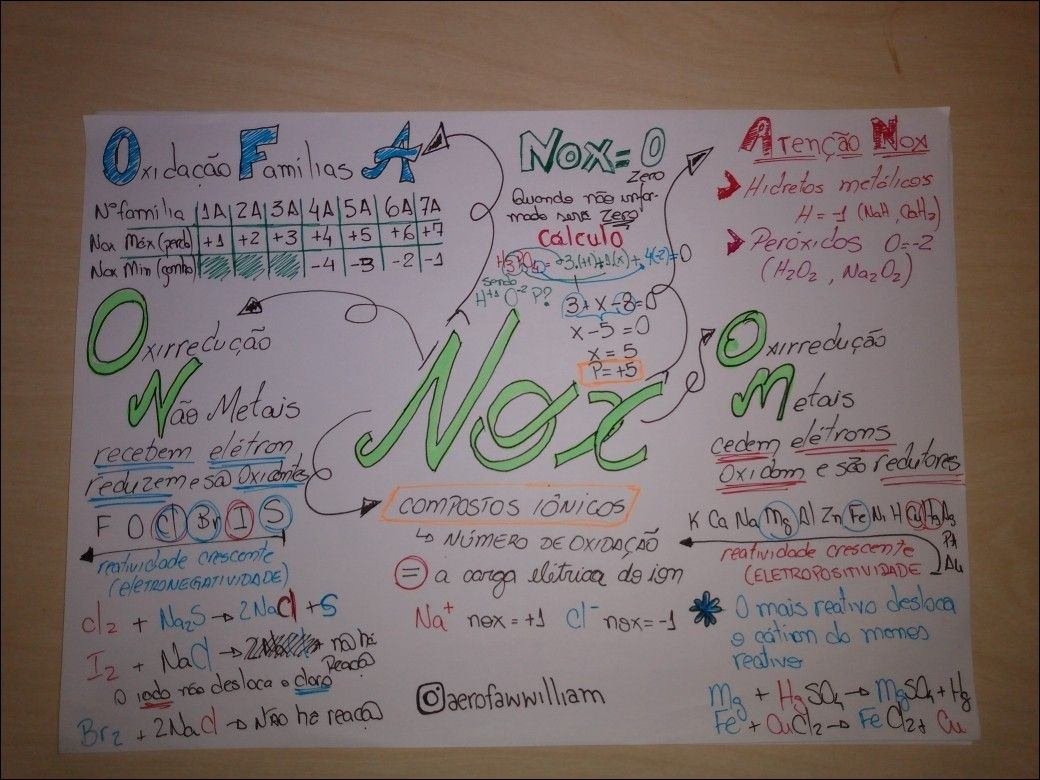 Oxidação Famílias A
Nº família | 1A | 2A | 3A | 4A | 5A | 6A | 7A
Nox Máx (perde) | +1 | +2 | +3 | +4 | +5 | +6 | +7
Nox Min (ganha) | -4 | -3 | -2 | -1
Nox = 0
Zero
Quando não infor-
mado será Zero!
Cálculo
H3PO4 = 3.(+1)+1(x)+4(-2)=0
sendo
H+1 O-2 P?
3 + x - 8 = 0
x - 5 = 0
x = 5
P = +5
Atenção Nox
Hidretos metálicos
H = -1 (NaH, CaH2)
Peróxidos O=-2
(H2O2, Na2O2)
Oxirredução
Não Metais
recebem elétron
reduzem e são Oxidantes
F O Cl Br I S
reatividade crescente
(ELETRONEGATIVIDADE)
Cl2 + Na2S → 2NaCl + S
I2 + NaCl → não há
Reação
O iodo não desloca o cloro
Br2 + 2NaCl → Não há reação
Nox
COMPOSTOS IÔNICOS
↳ NÚMERO DE OXIDAÇÃO
= a carga elétrica do íon
Na+ nox = +1 Cl- nox = -1
@aerofawwilliam
Oxirredução
Metais
cedem elétrons
Oxidam e são redutores
K Ca Na Mg Al Zn Fe Ni H Cu Hg Ag
Pt
Au
reatividade crescente
(ELETROPOSITIVIDADE
* O mais reativo desloca
o cátion do menos
reativo
Mg + HgSO4 → MgSO4 + Hg
Fe + CuCl2 → FeCl2 + Cu